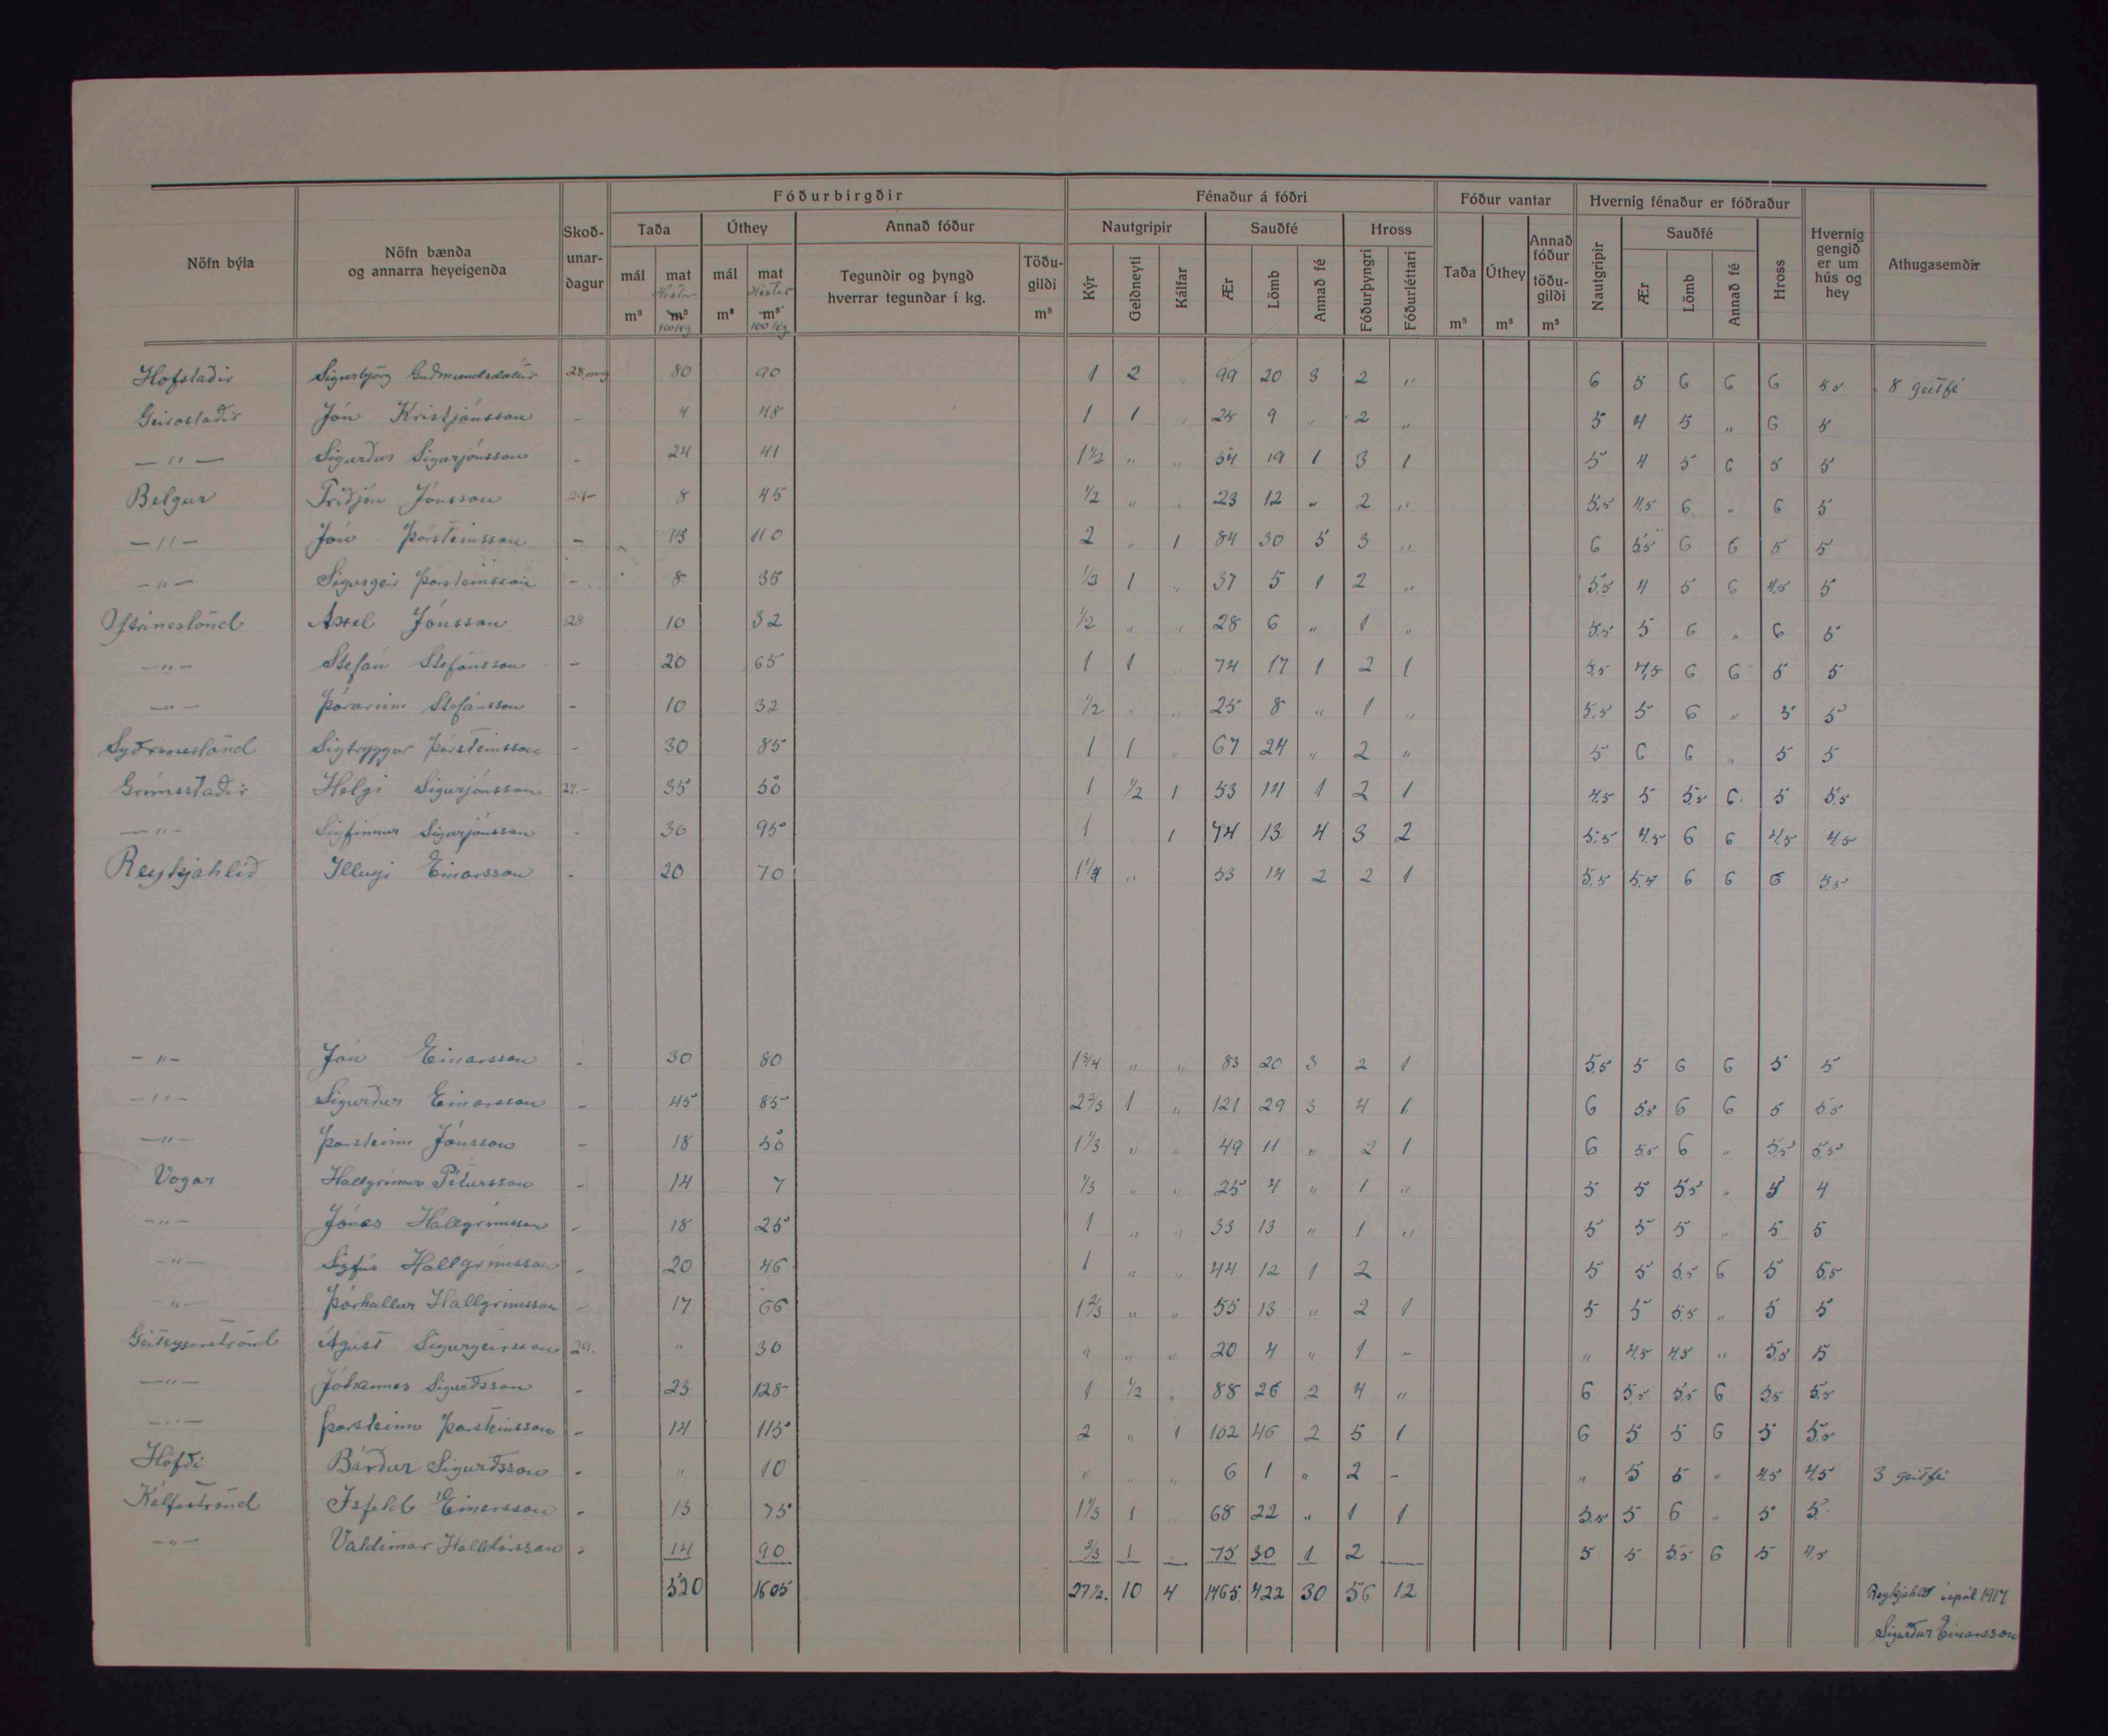 Fóðurbirgðir Fénaður á fóðri Fóður vantar Hvernig fénaður er fóðraður
Nöfn býla Nöfn bænda og annarra heyeigenda Skoð-unar-dagur Taða Úthey Annað fóður Nautgripir Sauðfé Hross Taða Úthey Annað fóður töðu-gildi Nautgripir Sauðfé Hross Hvernig gengið er um hús og hey Athugasemdir
mál m³ mat Hestar m³ 100 kg mál m³ mat Hestar m³ 100 kg Tegundir og þyngd hverrar tegundar í kg. Töðu-gildi m³ Kýr Geldneyti Kálfar Ær Lömb Annað fé Fóðurþyngri Fóðurléttari m³ m³ m³ Ær Lömb Annað fé
Hofstaðir Sigurbjörg Guðmundsdóttir 28. 80 90 1 2 „ 99 20 3 2 „ 6 5 6 6 6 5.5 8 geitfé
Geirastaðir Jón Kristjánsson - 4 48 1 1 „ 25 9 „ 2 „ 5 4 5 „ 6 5
— " — Sigurður Sigurjónsson - 24 41 1½ „ „ 54 19 1 3 1 5 4 5 6 5 5
Belgur Friðjón Jónsson 29 - 8 45 ½ „ „ 23 12 „ 2 „ 5.5 4.5 6 „ 6 5
— " — Jón Þorsteinsson - 13 110 2 „ 1 84 30 5 3 „ 6 5.5 6 6 5 5
— " — Sigurgeir Þorsteinsson - 8 35 ⅓ 1 „ 37 5 1 2 „ 5.5 4 5 6 4.5 5
Ytrineslönd Axel Jónsson 28 10 32 ½ „ „ 28 6 „ 1 „ 5.5 5 6 „ 6 5
— " — Stefán Stefánsson - 20 65 1 1 „ 74 17 1 2 1 5.5 4.5 6 6 5 5
— " — Þórarinn Stefánsson - 10 32 ½ „ „ 25 8 „ 1 „ 5.5 5 6 „ 5 5
Syðrineslönd Sigtryggur Þorsteinsson - 30 85 1 1 „ 67 24 „ 2 „ 5 6 6 „ 5 5
Grímsstaðir Helgi Sigurjónsson 27. - 35 50 1 ½ 1 53 14 1 2 1 4.5 5 5.5 6 5 5.5
— " — Sigfinnur Sigurjónsson - 36 95 1 1 74 13 4 3 2 5.5 4.5 6 6 4.5 4.5
Reykjahlíð Illugi Einarsson - 20 70 1¼ „ 53 14 2 2 1 5.5 5.5 6 6 6 5.5
— " — Jón Einarsson - 30 80 1¾ „ „ 83 20 3 2 1 5.5 5 6 6 5 5
— " — Sigurður Einarsson - 45 85 2⅔ 1 „ 121 29 3 4 1 6 5.5 6 6 5 5.5
— " — Þorsteinn Jónsson - 18 50 1⅓ „ „ 49 11 „ 2 1 6 5.5 6 „ 5.5 5.5
Vogar Hallgrímur Pétursson - 14 7 ⅓ „ „ 25 4 „ 1 „ 5 5 5.5 „ 5 4
— " — Jónas Hallgrímsson - 18 25 1 „ „ 33 13 „ 1 „ 5 5 5 „ 5 5
— " — Sigfús Hallgrímsson - 20 46 1 „ „ 44 12 1 2 5 5 5.5 6 5 5.5
— " — Þórhallur Hallgrímsson - 17 66 1⅔ „ „ 55 13 „ 2 1 5 5 5.5 „ 5 5
Geiteyjarströnd Ágúst Sigurgeirsson 29. „ 30 „ „ „ 20 4 „ 1 - „ 4.5 4.5 „ 5.5 5
— " — Jóhannes Sigurðsson - 23 128 1 ½ „ 88 26 2 4 „ 6 5.5 5.5 6 5.5 5.5
— " — Þorsteinn Þorsteinsson - 14 115 2 „ 1 102 46 2 5 1 6 5 5 6 5 5.5
Höfði Bárður Sigurðsson - „ 10 „ „ „ 6 1 „ 2 - „ 5 5 „ 4.5 4.5 3 geitfé
Kálfaströnd Ísfeld Einarsson - 13 75 1⅓ 1 „ 68 22 „ 1 1 5.5 5 6 „ 5 5
— " — Valdimar Halldórsson - 14 90 ⅔ 1 — 75 30 1 2 — 5 5 5.5 6 5 4.5
520 1605 27½. 10 4 1465 422 30 56 12
Reykjahlíð apríl 1917
Sigurður Einarsson